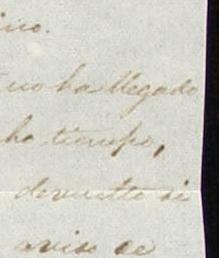 no ha llegado
ho tiempo,
devuelto si
aviso de